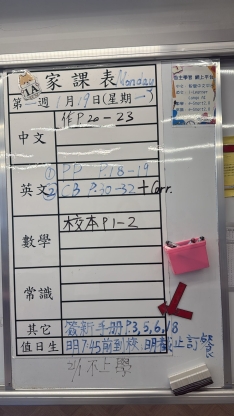 1A 家課表 Monday
第 週 1月19日(星期一)
中文 作P.20-23
英文 ① PP P.18-19
② CB P.30-32+Corr.
數學 校本P1-2
常識
其它 最新手册P.3,5,6,18
值日生 明7:45前到校 明截止訂餐
2/1不上學
自主學習 網上平台